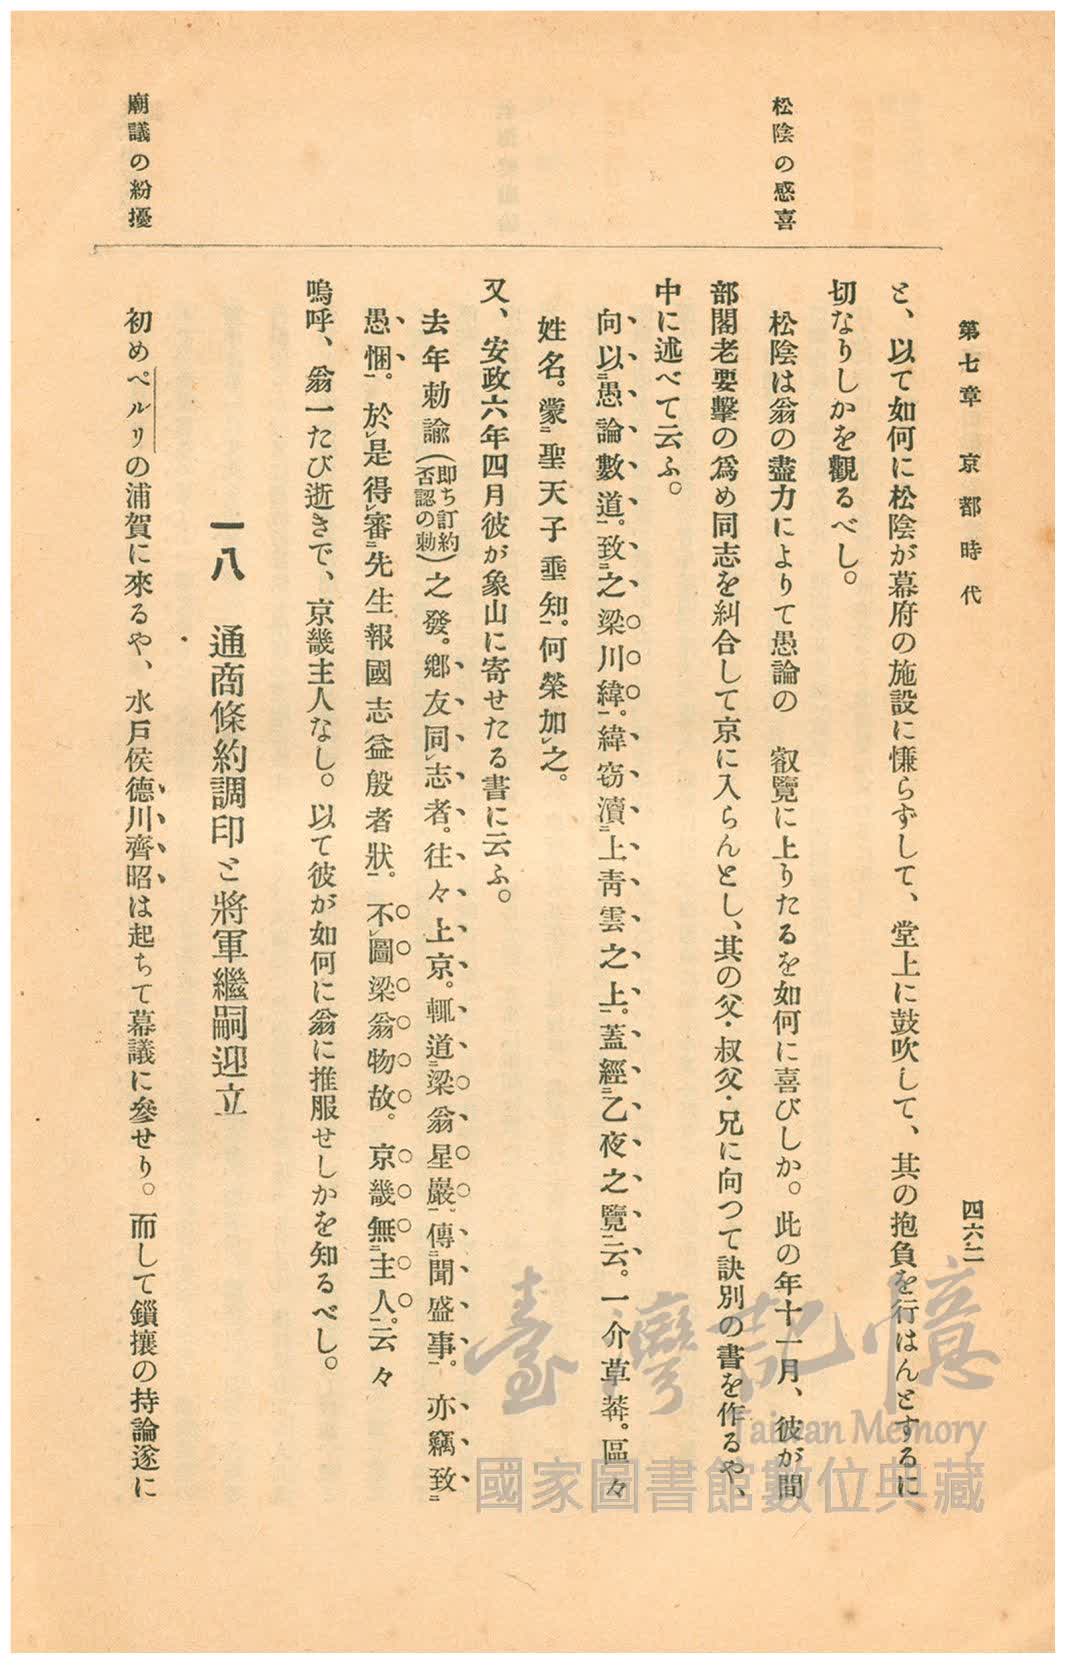 第七章 京都時代
四六二
松陰の感喜
廟議の紛擾
と、以て如何に松陰が幕府の施設に慊らずして、堂上に鼓吹して、其の抱負を行はんとするに
切なりしかを觀るべし。
松陰は翁の盡力によりて愚論の 叡覽に上りたるを如何に喜びしか。此の年十一月、彼が間
部閣老要擊の爲め同志を糾合して京に入らんとし、其の父・叔父・兄に向つて訣別の書を作るや、
中に述べて云ふ。
向以二愚論數道一。致二之梁川緯一。緯窃瀆二上靑雲之上一。蓋經二乙夜之覽一云。一介草莽。區々
姓名。蒙二聖天子垂知一。何榮加レ之。
又、安政六年四月彼が象山に寄せたる書に云ふ。
去年勅諭(即ち訂約否認の勅)之發。鄕友同レ志者。往々上京。輒道二梁翁星巖一。傳二聞盛事一。亦竊致二
愚悃一。於レ是得レ審二先生報國志益殷者狀一。不レ圖梁翁物故。京畿無二主人一。云々
嗚呼、翁一たび逝きで、京畿主人なし。以て彼が如何に翁に推服せしかを知るべし。
一八 通商條約調印と將軍繼嗣迎立
初めペルリの浦賀に來るや、水戶侯德川齊昭は起ちて幕議に參せり。而して鎖攘の持論遂に
臺灣記憶
Taiwan Memory
國家圖書館數位典藏